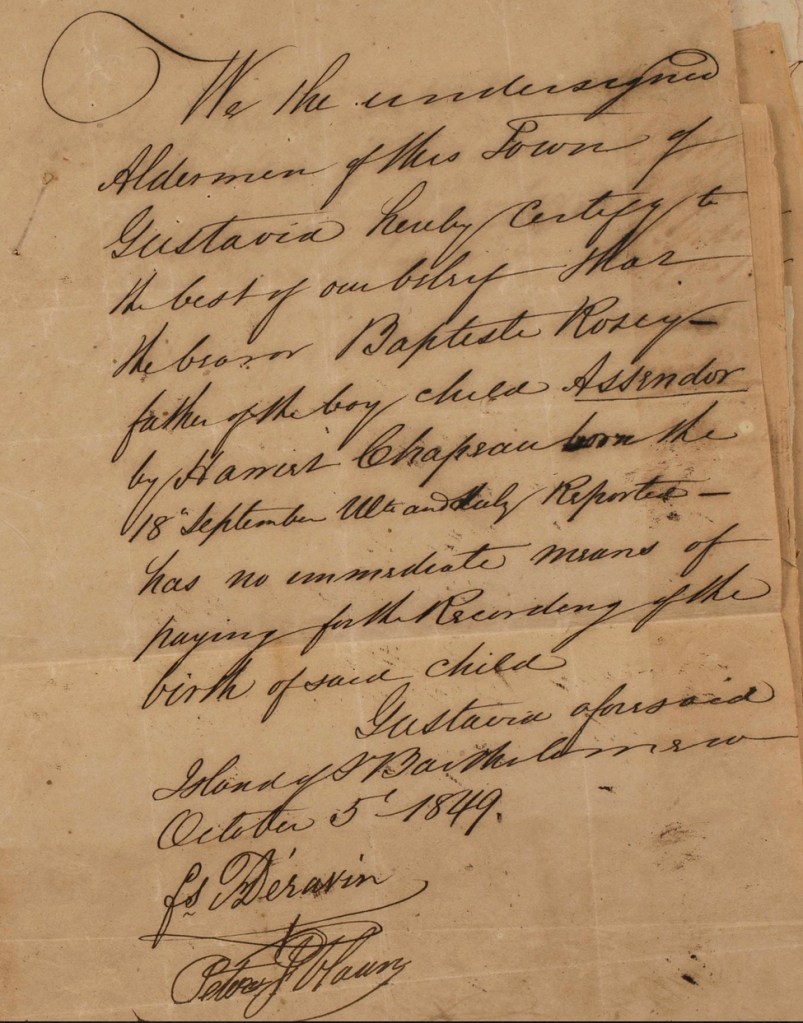 We the undersigned
Aldermen of this Town of
Gustavia hereby Certify to
the best of our belief that
the bearer Baptiste Rosey
father of the boy child Assendor
by Harriet Chapeau born the
18th September Ulto and duly Reported
has no immediate means of
paying for the Recording of the
birth of said child
Gustavia aforesaid
Island of St Bartholomew
October 5t 1849.
fs Déravin